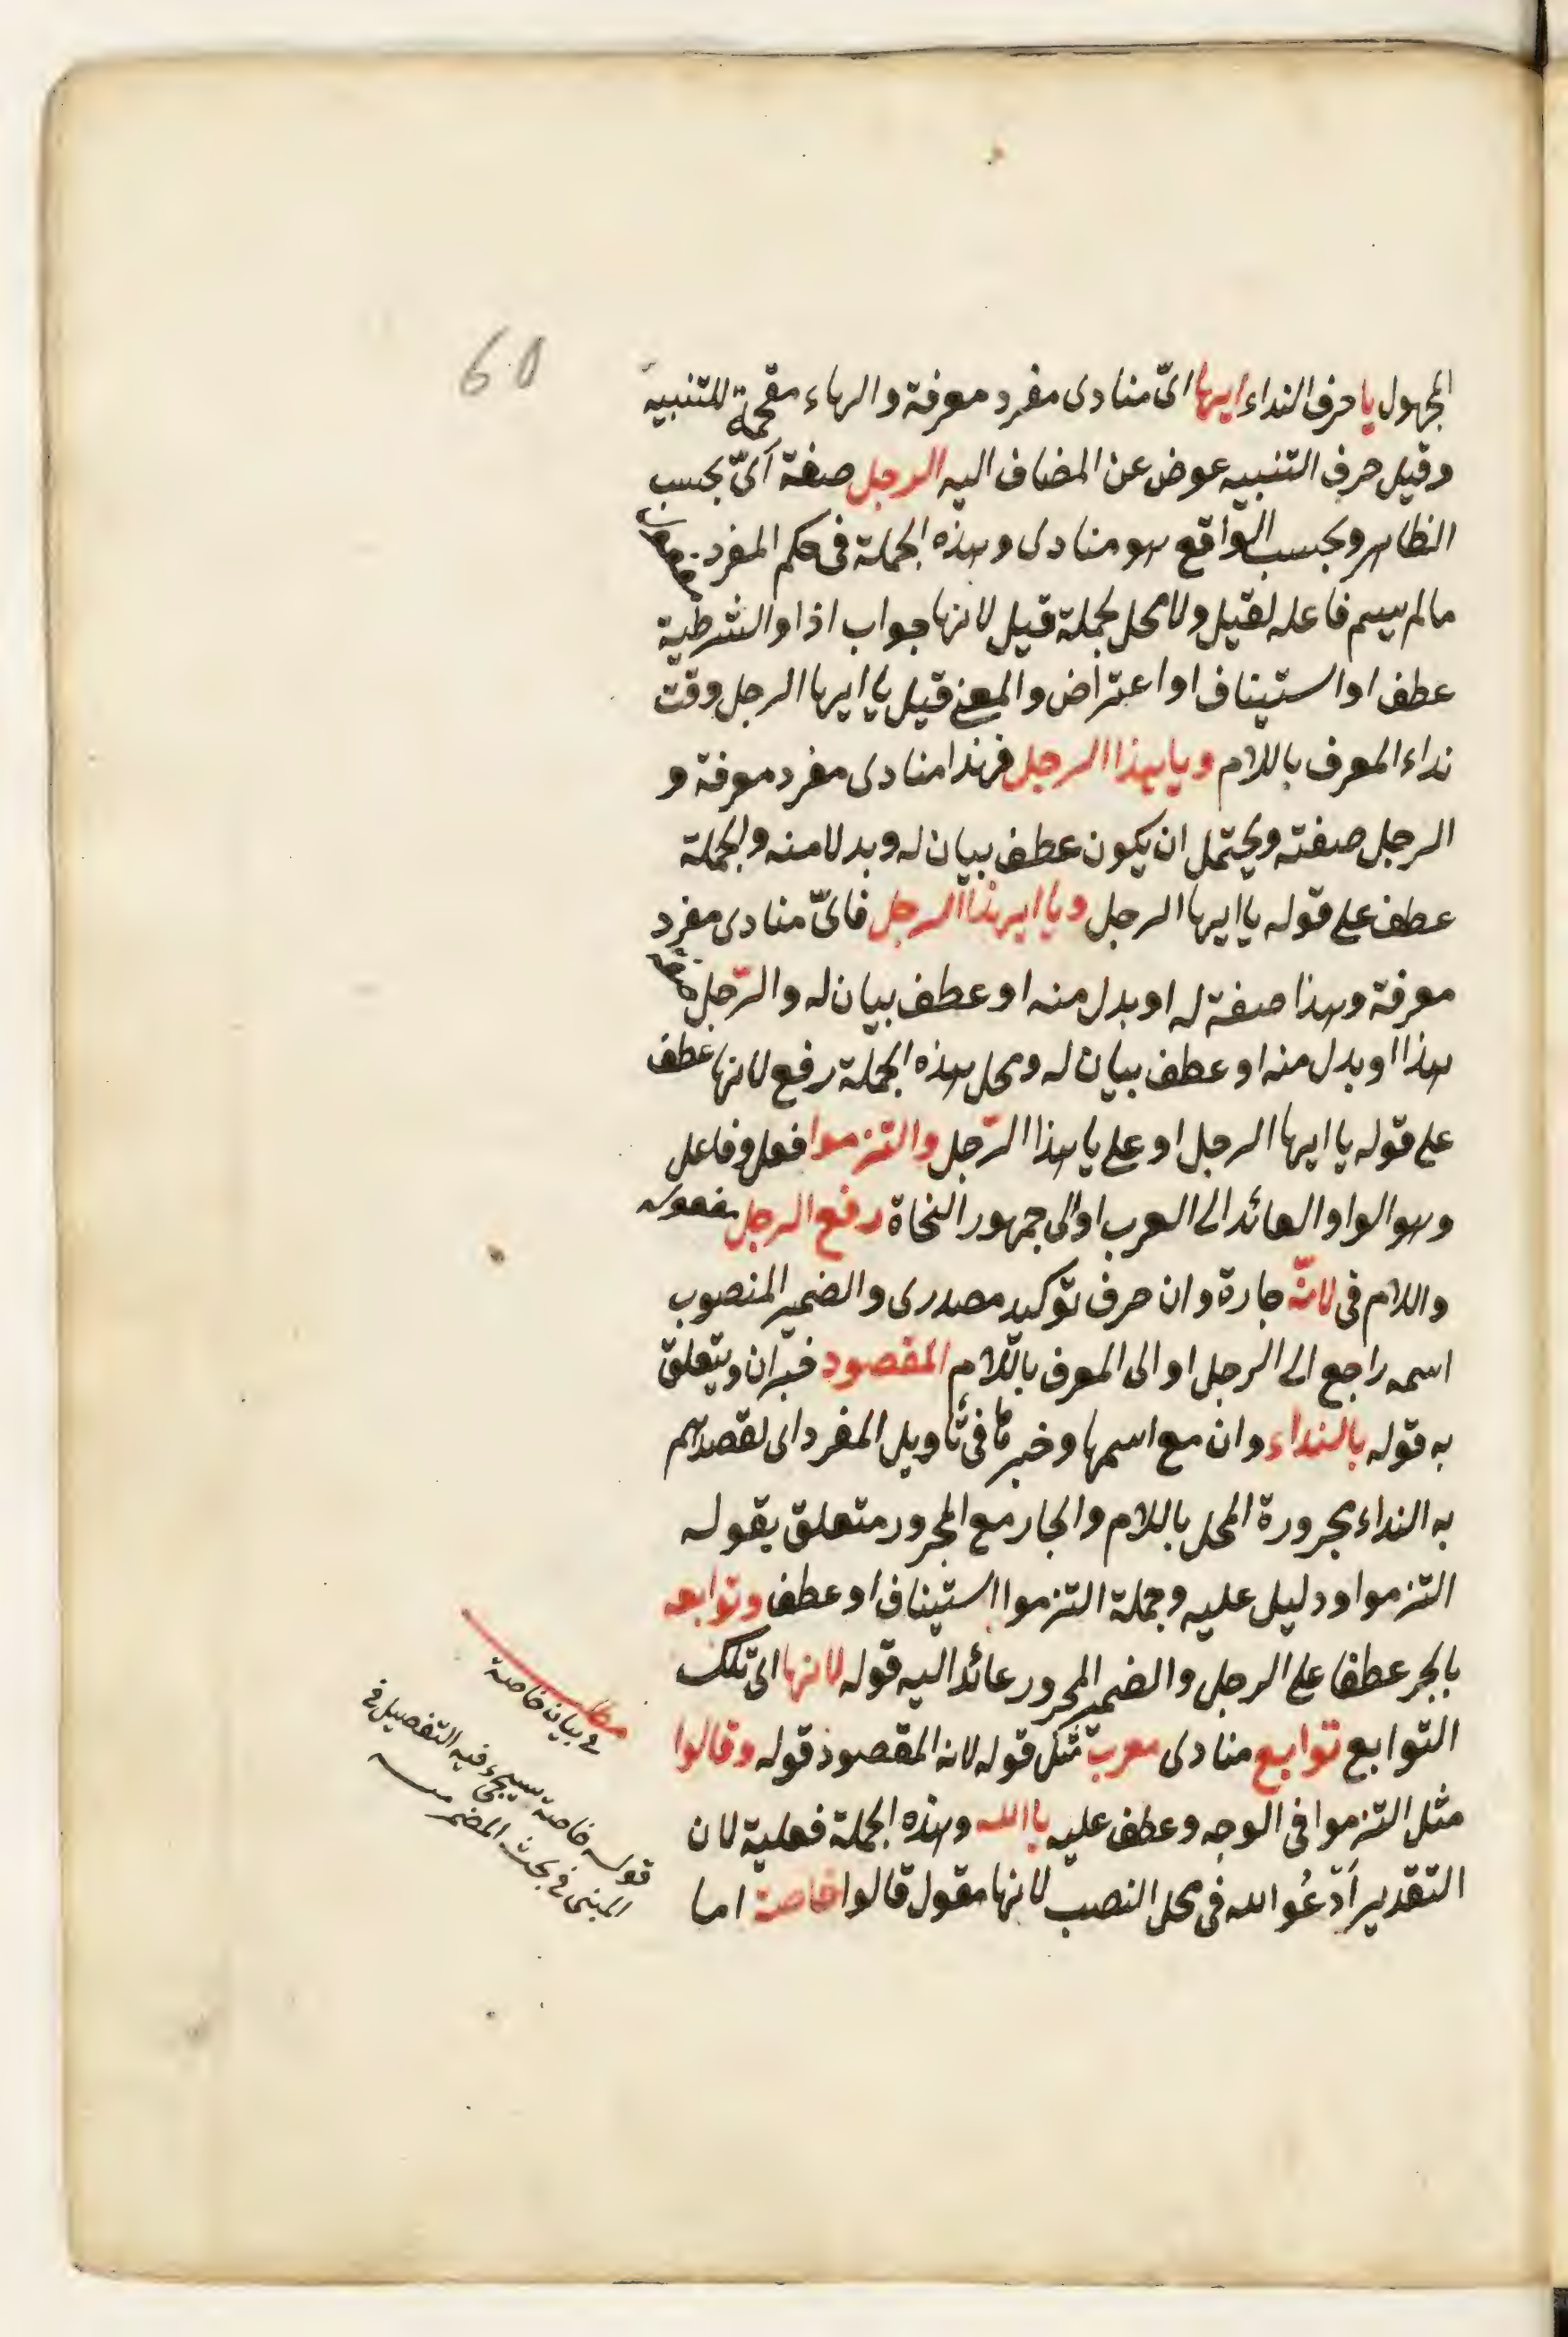 60
المجهول يا حرف النداء ايها ائ منادى مفرد معرفة والهاء مقحمة للتنبيه
وقيل حرف التنبيه عوض عن المضاف اليه الرجل صفة اىّ بحسب
الظاهر وبحسب الواقع هو منادى وهذه الجملة فى حكم المفرد
مالم يسم فاعله لقيل ولا محل لجملة قيل لانها جواب اذا والشرطية
عطف او استيناف او اعتراض والمعنى قيل يا ايها الرجل وقت
نداء المعرف باللام ويا هذا الرجل فهذا منادى مفرد معرفة و
الرجل صفته ويحتمل ان يكون عطف بيان له وبدلا منه والجملة
عطف على قوله يا ايها الرجل ويا ايهذا الرجل فاىّ منادى مفرد
معرفة وهذا صفة له او بدل منه او عطف بيان له والرّجل صفة
هذا او بدل منه او عطف بيان له ومحل هذه الجملة رفع لانها عطف
على قوله يا ايها الرجل او على يا هذا الرّجل والتزموا فعل وفاعل
وهو الواو العائد الى العرب او الى جمهور النحاة رفع الرجل مفعوله
واللام فى لانّه جارة وان حرف توكيد مصدرى والضمير المنصوب
اسمه راجع الى الرجل او الى المعرف باللام المقصود خبر ان ويتعلق
به قوله بالنداء وان مع اسمها وخبرها فى تأويل المفرد اى لقصدهم
به النداء مجرورة المحل باللام والجار مع المجرور متعلق بقوله
التزموا ودليل عليه وجملة التزموا استيناف او عطف وتوابعه
بالجر عطفا على الرجل والضمير المجرور عائد اليه قوله لانها اى تلك
التوابع توابع منادى معرب مثل قوله لانه المقصود قوله وقالوا
مثل التزموا فى الوجه وعطف عليه يا الله وهذه الجملة فعلية لان
التقدير اَدْعُو الله فى محل النصب لانها مقول قالوا خاصة اما
مطلب
فى بيان خاصة
قوله خاصة سيجىء فيه التفصيل فى
المبنى فى بحث المضمر